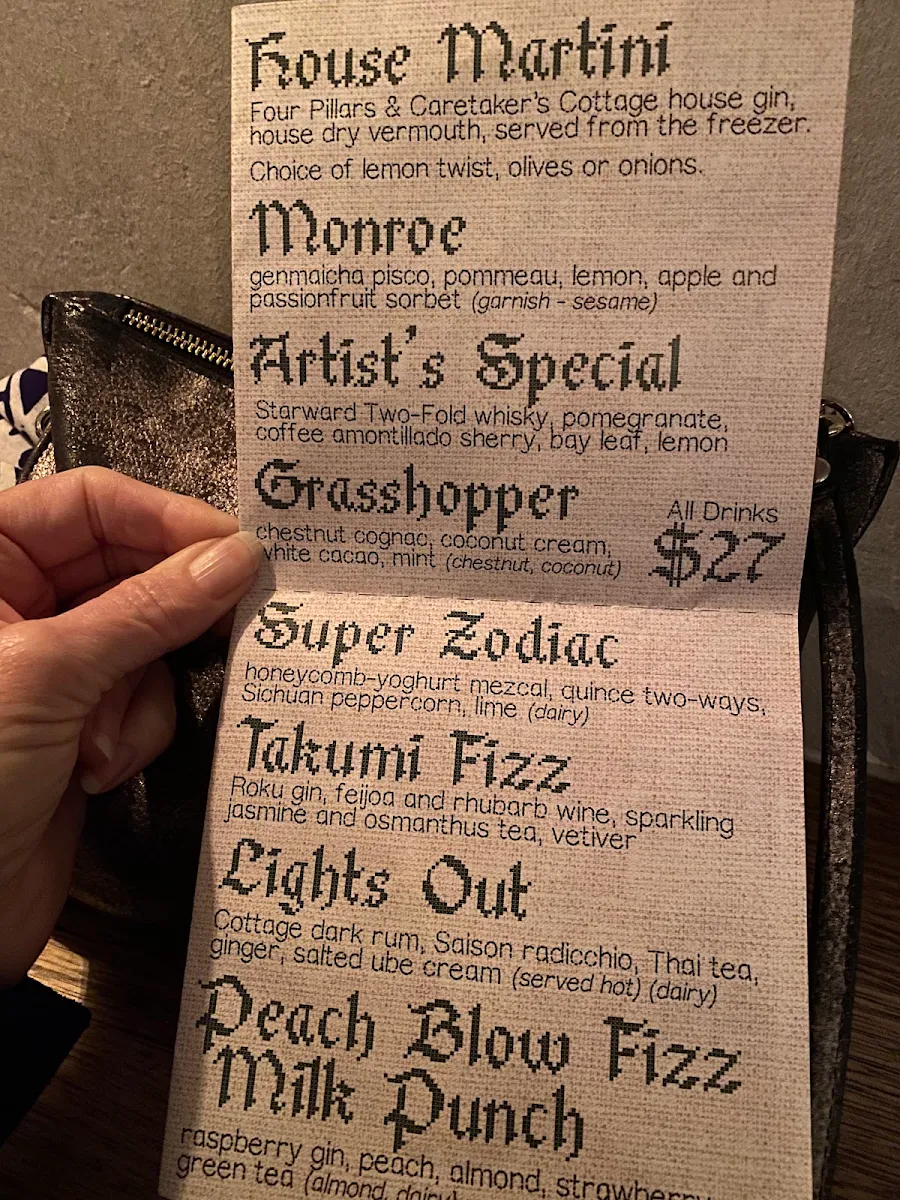 House Martini
Four Pillars & Caretaker's Cottage house gin,
house dry vermouth, served from the freezer.
Choice of lemon twist, olives or onions.
Monroe
genmaicha pisco, pommeau, lemon, apple and
passionfruit sorbet (garnish - sesame)
Artist's Special
Starward Two-Fold whisky, pomegranate,
coffee amontillado sherry, bay leaf, lemon
Grasshopper
chestnut cognac, coconut cream,
white cacao, mint (chestnut, coconut)
All Drinks
$27
Super Zodiac
honeycomb-yoghurt mezcal, quince two-ways,
Sichuan peppercorn, lime (dairy)
Takumi Fizz
Roku gin, feijoa and rhubarb wine, sparkling
jasmine and osmanthus tea, vetiver
Lights Out
Cottage dark rum, Saison radicchio, Thai tea,
ginger, salted ube cream (served hot) (dairy)
Peach Blow Fizz
Milk Punch
raspberry gin, peach, almond, strawberry
green tea (almond, dairy)